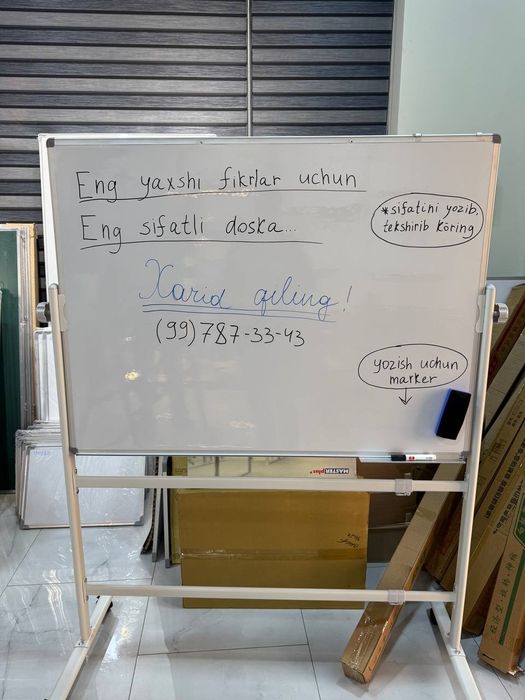 Eng yaxshi fikrlar uchun
Eng sifatli doska...
*sifatini yozib,
tekshirib köring
Xarid qiling!
(99)787-33-43
yozish uchun
marker
MASTER plus+